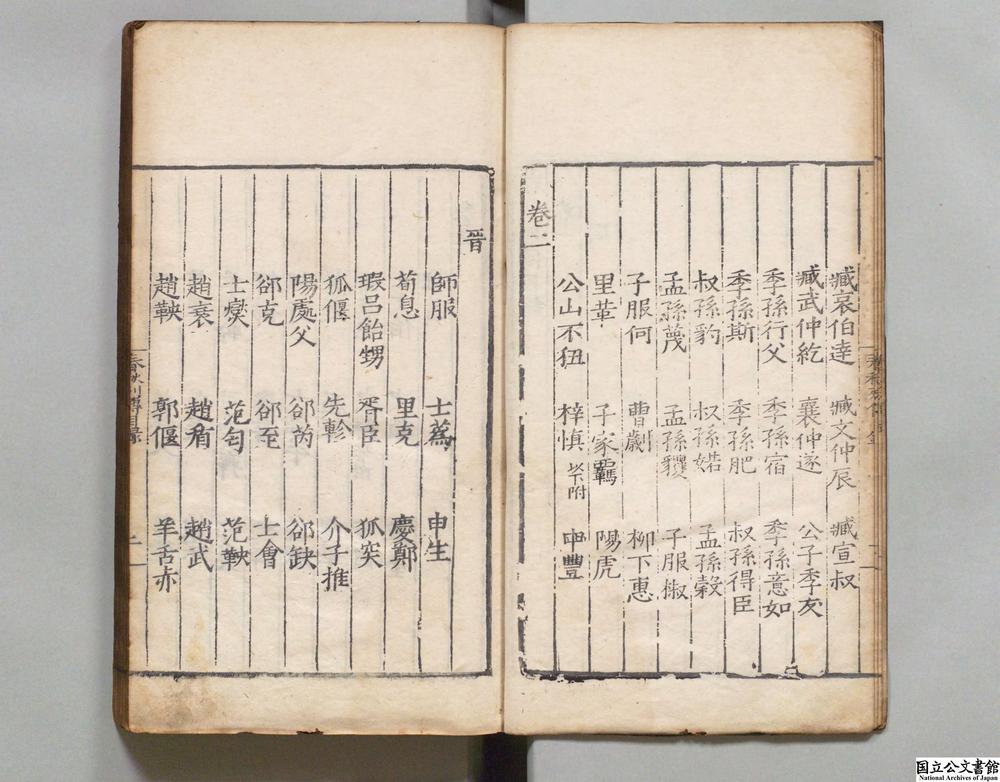 臧哀伯達 臧文仲辰 臧宣叔
臧武仲紇 襄仲遂 公子季友
季孫行父 季孫宿 季孫意如
季孫斯 季孫肥 叔孫得臣
叔孫豹 叔孫婼 孟孫穀
孟孫蔑 孟孫貜 子服椒
子服何 曹劌 柳下惠
里革 子家羈 陽虎
公山不狃 梓慎 以下附 申豐
卷二
晉
師服 士蒍 申生
荀息 里克 慶鄭
瑕呂飴甥 胥臣 狐突
狐偃 先軫 介子推
陽處父 郤芮 郤缺
郤克 郤至 士會
士燮 范匄 范鞅
趙衰 趙盾 趙武
趙鞅 郭偃 羊舌赤
春秋列傳目錄
二
国立公文書館
National Archives of Japan